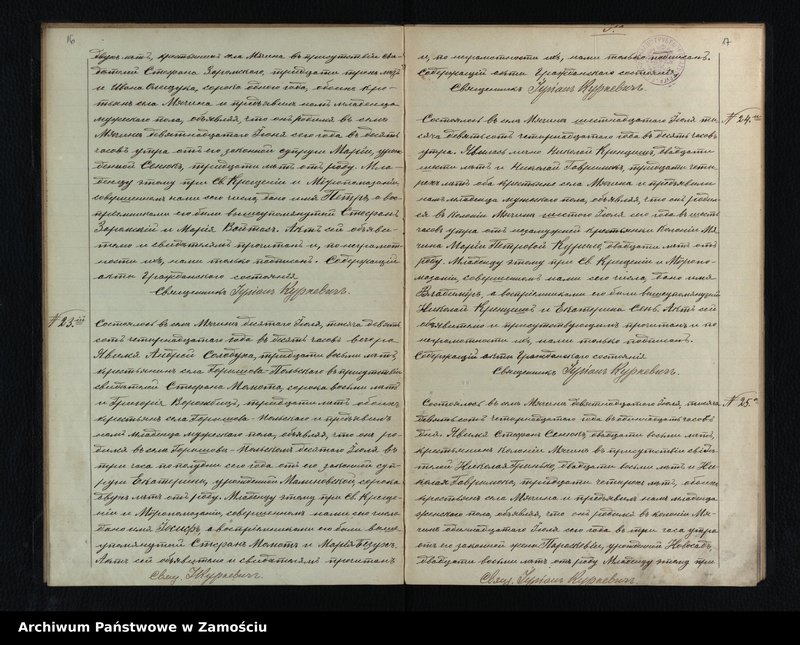 16
двухъ лѣтъ, крестьянина села Мягина въ присутствіи сви-
дѣтелей Стефана Заромскаго, тридцати трехъ лѣтъ
и Ивана сорока одного года, обоихъ кре-
стьянъ села Мягина и предъявилъ намъ младенца
мужескаго пола, объявляя, что онъ родился въ селѣ
Мягинѣ девятнадцатого Іюня сего года въ десять
часовъ утра отъ его законной супруги Маріи, урож-
денной Сенюкъ, тридцати лѣтъ отъ роду. Мла-
денцу этому при Св. Крещеніи и Мѵропомазаніи,
совершенномъ нами сего числа, дано имя Петръ, а вос-
пріемниками его были вышеупомянутый Стефанъ
Заромскій и Марія Войтюкъ. Актъ сей объяви-
телю и свидѣтелямъ прочитанъ и, по неграмот-
ности ихъ, нами только подписанъ. Содержащій
акты Гражданскаго состоянія
Священникъ Іуліанъ Куркевичъ.
№ 23.
Состоялось въ селѣ Мягинѣ десятаго Іюля, тысяча девять-
сотъ четырнадцатаго года въ десять часовъ вечера.
Явился Андрей Солодуха, тридцати восьми лѣтъ,
крестьянинъ села Горышова-Польскаго въ присутствіи
свидѣтелей Стефана Молота, сорока восьми лѣтъ
и Григорія тридцати лѣтъ обоихъ
крестьянъ села Горышова-Польскаго и предъявилъ
намъ младенца мужескаго пола, объявляя, что онъ ро-
дился въ селѣ Горышовѣ-Польскомъ десятаго Іюля въ
три часа по полудни сего года отъ его законной суп-
руги Екатерины, урожденной Малиновской, сорока
двухъ лѣтъ отъ роду. Младенцу этому при Св. Креще-
ніи и Мѵропомазаніи, совершенномъ нами сего числа
дано имя Іосифъ, а воспріемниками его были выше-
упомянутый Стефанъ Молотъ и Марія
Актъ сей объявителю и свидѣтелямъ прочитанъ
Свящ. І Куркевичъ.
17
и, по неграмотности ихъ, нами только подписанъ.
Содержащій акты Гражданскаго состоянія
Священникъ Іуліанъ Куркевичъ.
№ 24.
Состоялось въ селѣ Мягинѣ шестнадцатаго Іюля ты-
сяча девятьсотъ четырнадцатаго года въ десять часовъ
утра. Явились лично Николай двадцати
шести лѣтъ и Николай Гаврилюкъ, тридцати четы-
рехъ лѣтъ оба крестьяне села Мягина и предъявили
намъ младенца мужескаго пола, объявляя, что онъ родил-
ся въ колоніи Мягинѣ шестого Іюля сего года въ шесть
часовъ утра отъ незамужней крестьянки колоніи Мя-
гина Маріи Петровой двадцати лѣтъ отъ
роду. Младенцу этому при Св. Крещеніи и Мѵропо-
мазаніи, совершенномъ нами сего числа, дано имя
Владиміръ, а воспріемниками его были вышеупомянутый
Николай и Екатерина Сень. Актъ сей
объявителю и присутствующимъ прочитанъ и по
неграмотности ихъ, нами только подписанъ.
Содержащій акты Гражданскаго состоянія
Священникъ Іуліанъ Куркевичъ.
№ 25.
Состоялось въ селѣ Мягинѣ девятнадцатаго Іюля, тысяча
девятьсотъ четырнадцатаго года въ одиннадцать часовъ
дня. Явился Стефанъ Сенюкъ, двадцати восьми лѣтъ,
крестьянинъ колоніи Мягинъ въ присутствіи свидѣ-
телей Николая двадцати восьми лѣтъ и Ни-
колая Гаврилюка, тридцати четырехъ лѣтъ, обоихъ
крестьянъ села Мягина и предъявилъ намъ младенца
женскаго пола, объявляя, что онъ родился въ колоніи Мя-
гинѣ одиннадцатаго Іюля сего года въ три часа утра
отъ его законной жены Параскевы, урожденной Новосадъ,
двадцати восьми лѣтъ отъ роду Младенцу этому при
Свящ. Іуліанъ Куркевичъ.
Archiwum Państwowe w Zamościu